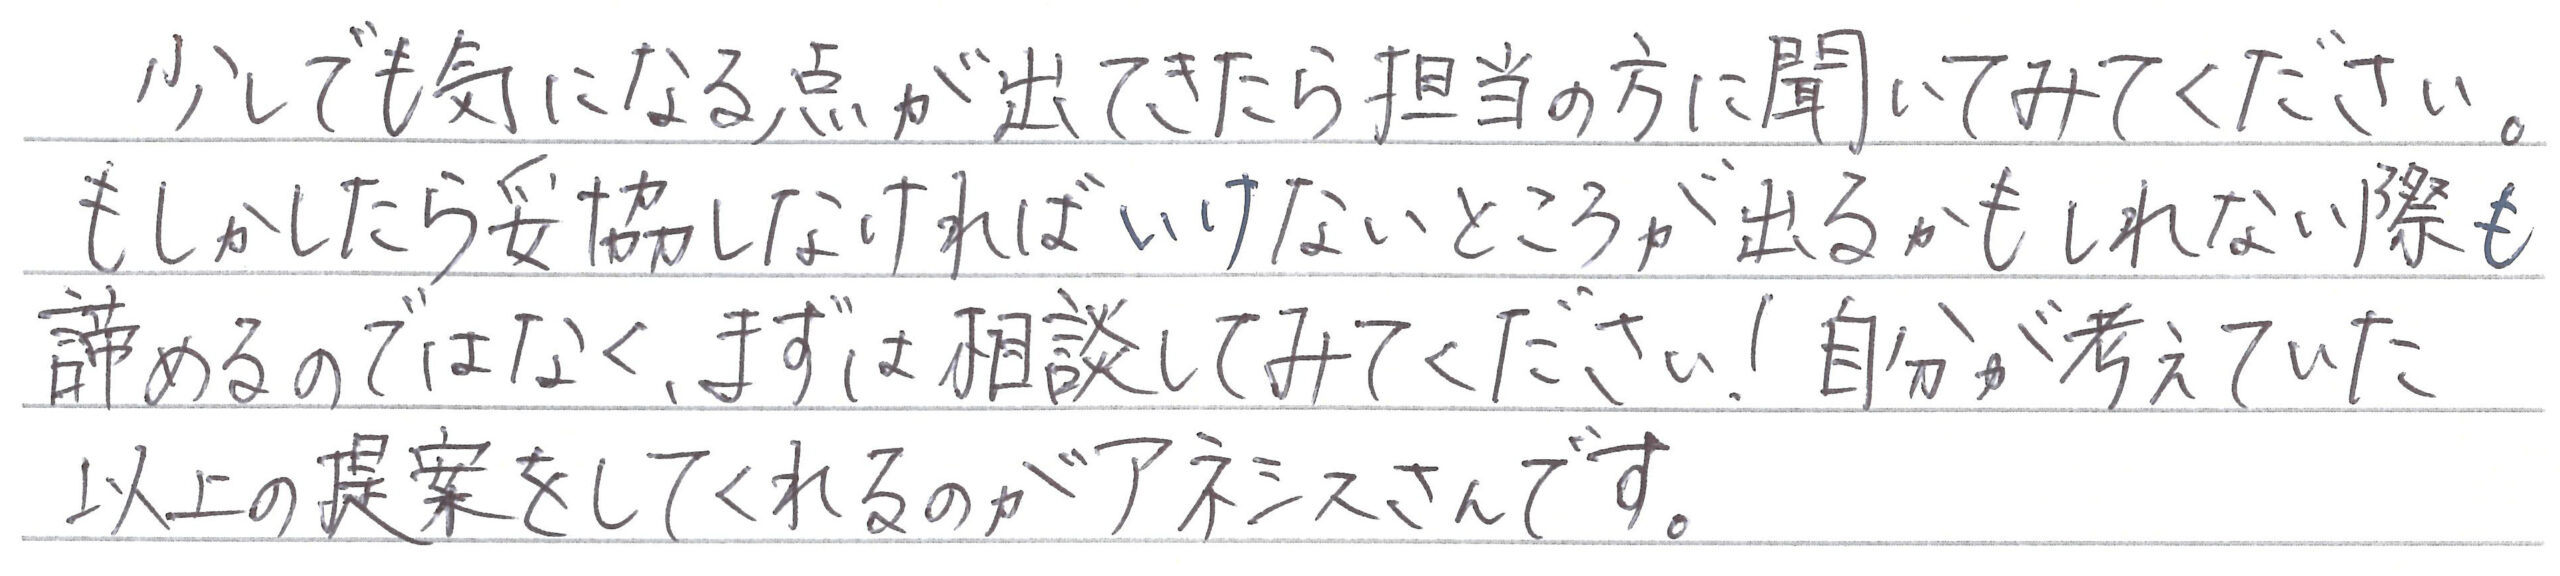 少しでも気になる点が出てきたら担当の方に聞いてみてください。
もしかしたら妥協しなければいけないところが出るかもしれない際も
諦めるのではなく、まずは相談してみてください！自分が考えていた
以上の提案をしてくれるのがアネシスさんです。